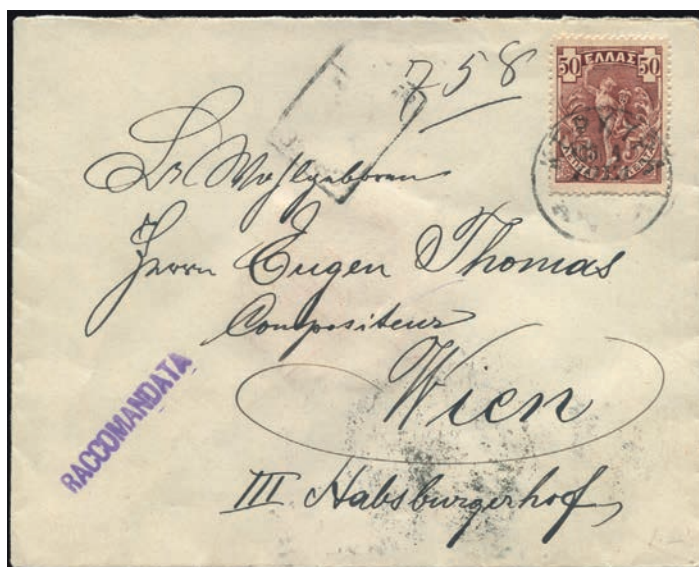 758
50 ΕΛΛΑΣ 50
Sr Wohlgeboren
Herrn Eugen Thomas
Compositeur
Wien
III Habsburgerhof
RACCOMANDATA